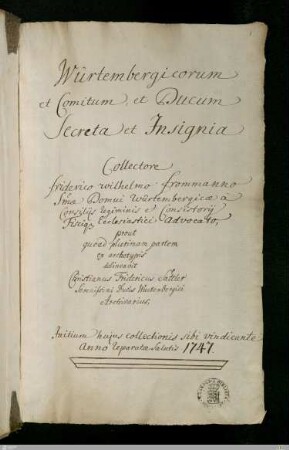 Würtembergicorum
et Comitum et Ducum
Secreta et Insignia
Collectore
friderico wilhelmo frommanno
Domui Würtembergicæ à
Consiliis Regiminis et Consistorij
Ecclesiastici Advocato,
prout
quoad plurimam partem
ex archetypis
delineavit
Christianus Fridericus Sattler
Serenissimi Ducis Würtembergici
Archivarius.
Initium hujus collectionis sibi vindicante
Anno reparatæ Salutis 1747.